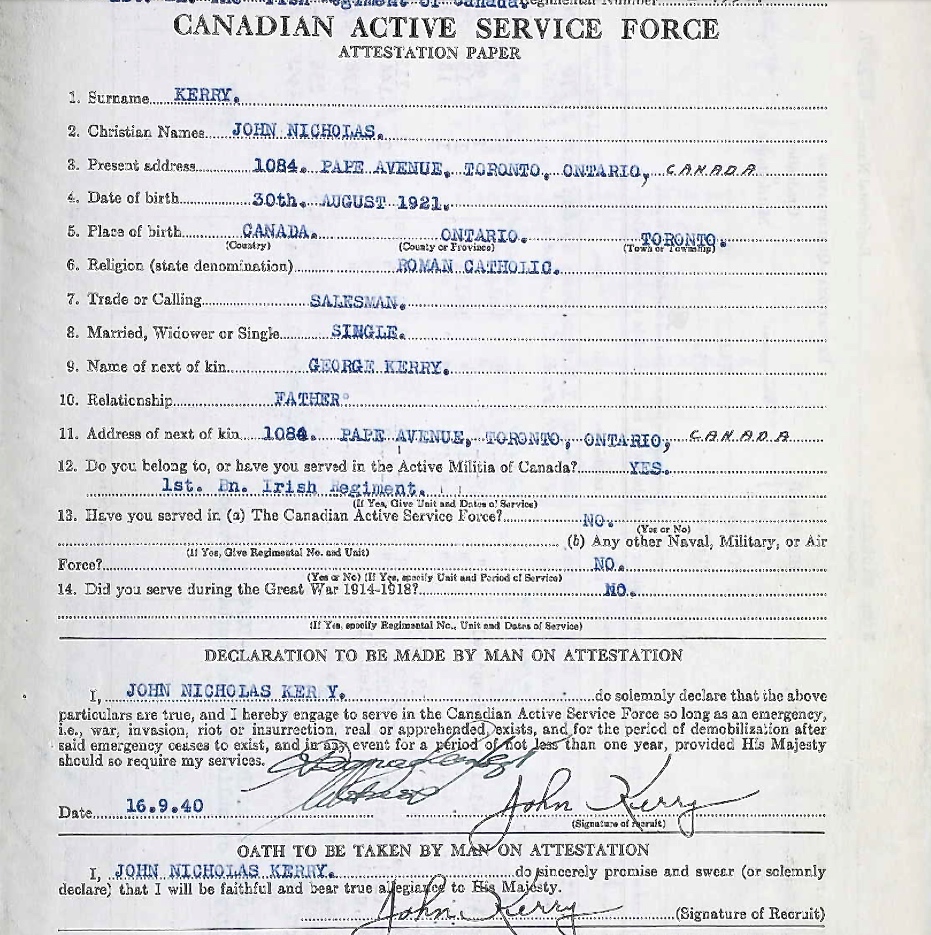 1st. Bn. The Irish Regiment of Canada. Regimental Number
CANADIAN ACTIVE SERVICE FORCE
ATTESTATION PAPER
1. Surname KERRY.
2. Christian Names JOHN NICHOLAS.
3. Present address 1084. PAPE AVENUE, TORONTO, ONTARIO, CANADA
4. Date of birth 30th. AUGUST 1921.
5. Place of birth CANADA. ONTARIO. TORONTO.
(Country) (County or Province) (Town or Township)
6. Religion (state denomination) ROMAN CATHOLIC.
7. Trade or Calling SALESMAN.
8. Married, Widower or Single SINGLE.
9. Name of next of kin GEORGE KERRY.
10. Relationship FATHER
11. Address of next of kin 1084. PAPE AVENUE, TORONTO, ONTARIO, CANADA
12. Do you belong to, or have you served in the Active Militia of Canada? YES.
1st. Bn. Irish Regiment.
(If Yes, Give Unit and Dates of Service)
13. Have you served in (a) The Canadian Active Service Force? NO.
(Yes or No)
(b) Any other Naval, Military, or Air
(If Yes, Give Regimental No. and Unit)
Force? NO.
(Yes or No) (If Yes, specify Unit and Period of Service)
14. Did you serve during the Great War 1914-1918? NO.
(If Yes, specify Regimental No., Unit and Dates of Service)
DECLARATION TO BE MADE BY MAN ON ATTESTATION
I, JOHN NICHOLAS KER Y. do solemnly declare that the above
particulars are true, and I hereby engage to serve in the Canadian Active Service Force so long as an emergency,
i.e., war, invasion, riot or insurrection, real or apprehended, exists, and for the period of demobilization after
said emergency ceases to exist, and in any event for a period of not less than one year, provided His Majesty
should so require my services.
Date 16.9.40 John Kerry
(Signature of Recruit)
OATH TO BE TAKEN BY MAN ON ATTESTATION
I, JOHN NICHOLAS KERRY. do sincerely promise and swear (or solemnly
declare) that I will be faithful and bear true allegiance to His Majesty.
John. Kerry (Signature of Recruit)